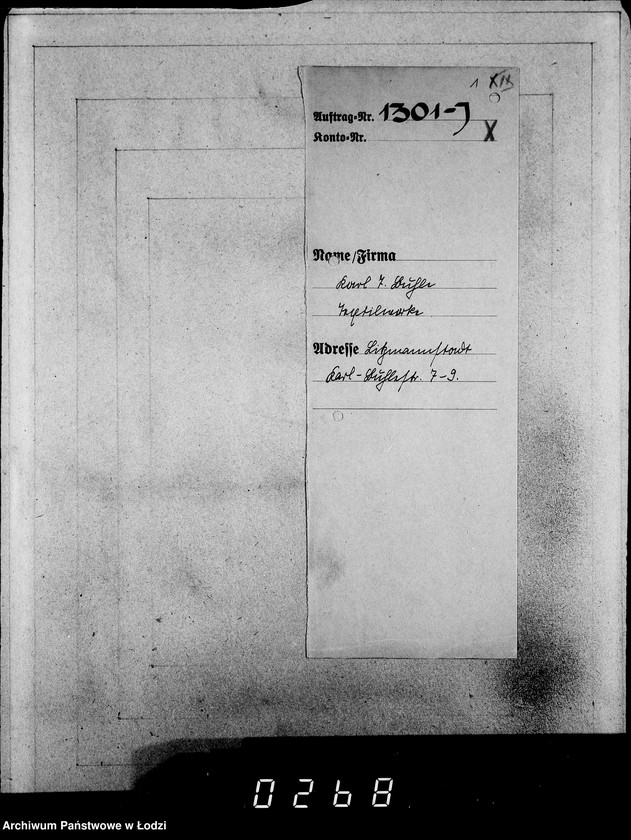 1 XII
Auftrag-Nr. 1301-J
Konto-Nr. X
Name/Firma
Karl T. Buhle
Textilwerke
Adresse Litzmannstadt
Karl-Buhlestr. 7-9.
0268
Archiwum Państwowe w Łodzi